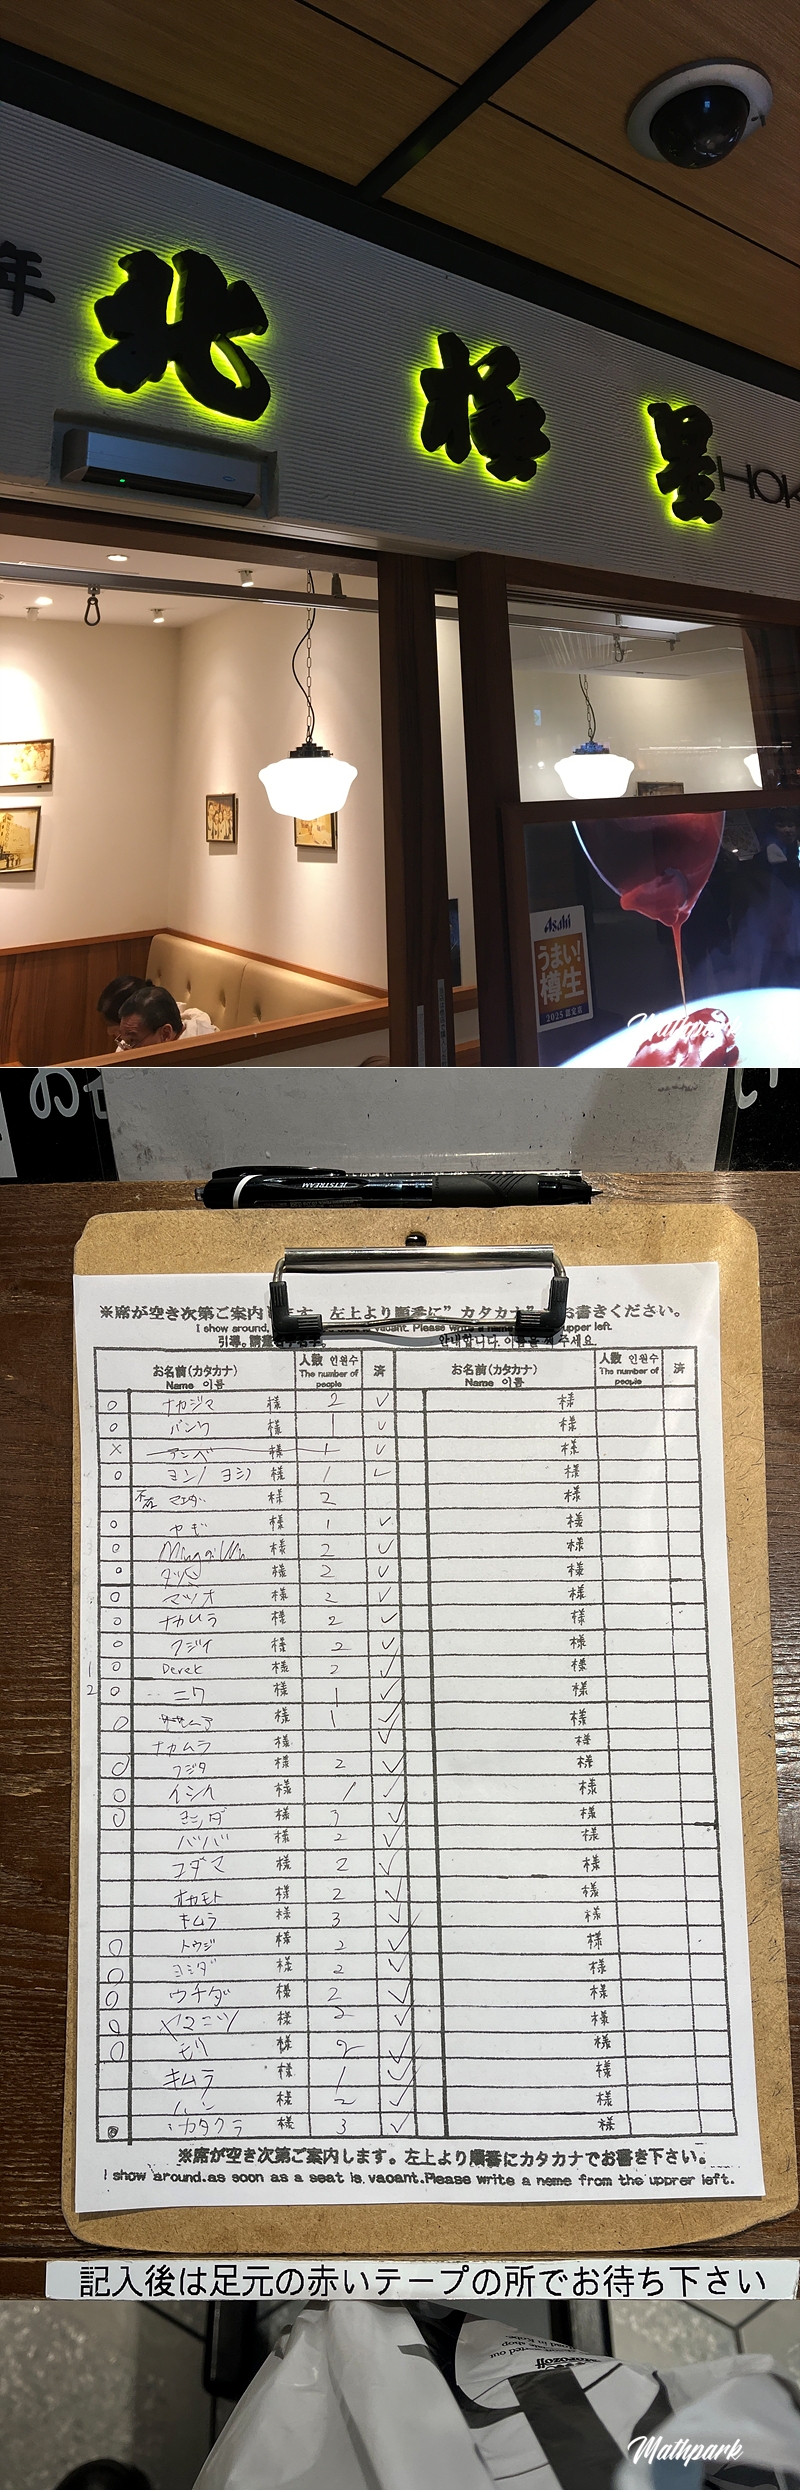 年 北極星 HOK
Asahi
うまい!
樽生
2025 認定店
Mathpark
JETSTREAM
※席が空き次第ご案内します。左上より順番に”カタカナ”でお書きください。
I show around, vacant. Please write a name upper left.
안내합니다. 이름을 주세요.
お名前(カタカナ) 人数 인원수 済 お名前(カタカナ) 人数 인원수 済
Name 이름 The number of people Name 이름 The number of people
○ ナカジマ 様 2 ✓ 様
○ 様 1 ✓ 様
× アンベ 様 1 ✓ 様
○ 様 1 ✓ 様
マエダ 様 2 様
○ ヤギ 様 1 ✓ 様
○ 様 2 ✓ 様
○ 様 2 ✓ 様
○ マツオ 様 2 ✓ 様
○ ナカムラ 様 2 ✓ 様
○ フジイ 様 2 ✓ 様
1 ○ Derek 様 2 ✓ 様
2 ○ ニワ 様 1 ✓ 様
○ 様 1 ✓ 様
ナカムラ ✓ 様
○ フジタ 様 2 ✓ 様
○ 様 1 ✓ 様
○ 様 3 ✓ 様
ババ 様 2 ✓ 様
コダマ 様 2 ✓ 様
オカモト 様 2 ✓ 様
キムラ 様 3 ✓ 様
○ トウジ 様 2 ✓ 様
○ ヨシダ 様 2 ✓ 様
○ ウチダ 様 2 ✓ 様
○ 様 2 ✓ 様
○ モリ 様 2 ✓ 様
キムラ 様 1 ✓ 様
様 2 ✓ 様
カタクラ 様 3 ✓ 様
※席が空き次第ご案内します。左上より順番にカタカナでお書き下さい。
I show around.as soon as a seat is vacant.Please write a neme from the upprer left.
記入後は足元の赤いテープの所でお待ち下さい
Mathpark